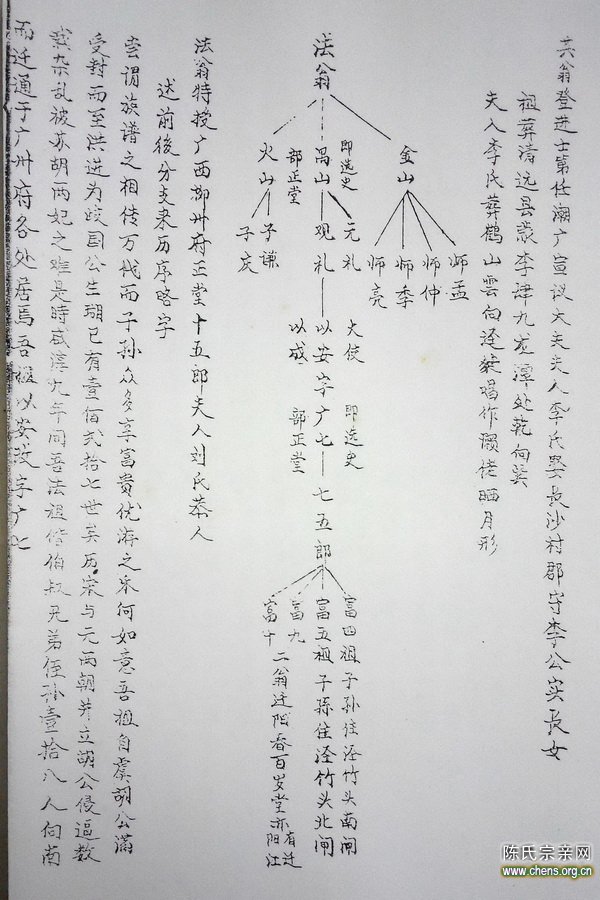 六翁登进士第任湖广宣议大夫夫人李氏娶长沙村郡守李公实长女
祖葬清远县 李肆九龙潭处乾向巽
夫人李氏葬鹤山云向迳 唱作獭佬晒月形
法翁
金山
禺山
即选史
部正堂
火山
师孟
师仲
师季
师亮
元礼
观礼
子谦
子庆
大使
以安字广七
以成
即选史
部正堂
七五郎
富四祖子孙住泾竹头南闸
富五祖子孙住泾竹头北闸
富九
富十
二翁迁阳春百岁堂亦有迁阳江
法翁特授广西柳州府正堂十五郎夫人刘氏恭人
述前後分支来历序略字
尝谓族谱之相传万代而子孙众多享富贵优游之来何如意吾祖自虞胡公满
受封而至洪进为 国公生瑚已有壹佰贰拾七世矣历宋与元两朝并立胡公侵逼数
载杂乱被苏胡两妃之难是時咸淳九年同吾法祖偕伯叔兄弟侄孙壹拾八人向南
而迁通于广州府各处居焉吾祖以安汶字广七
陈氏宗亲网
www.chens.org.cn